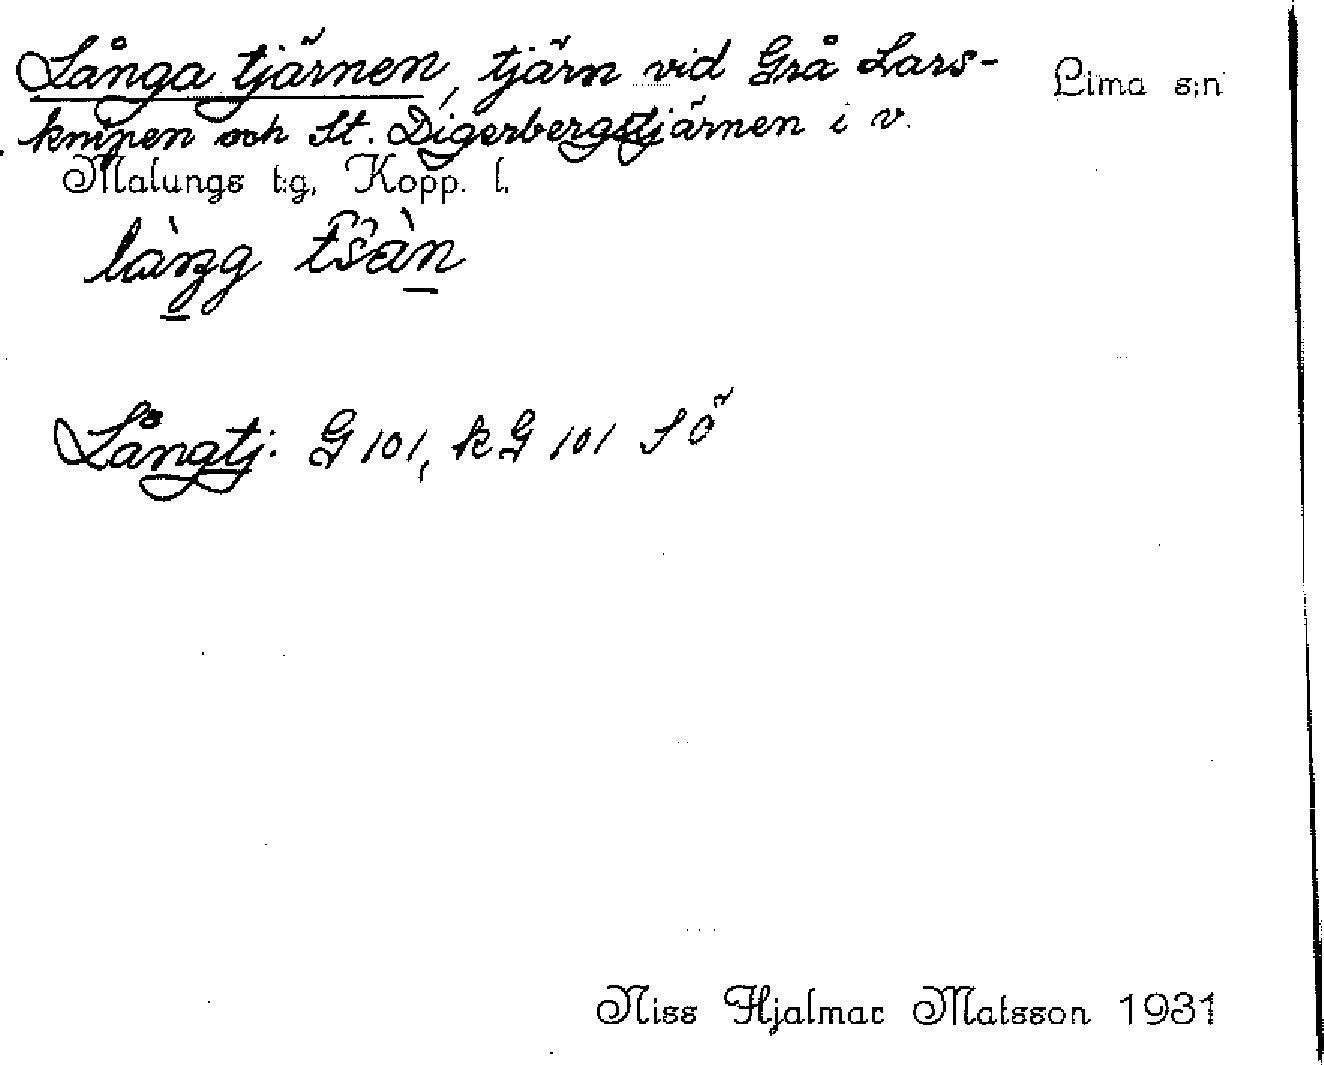 Långa tjärnen, tjärn vid Grå Lars- Lima s:n
knipen och St. Digerbergstjärnen i v.
Malungs t:g, Kopp. l.
làŋg tŝàn
Långtj. G 101, kG 101 SÖ
Niss Hjalmar Matsson 1931